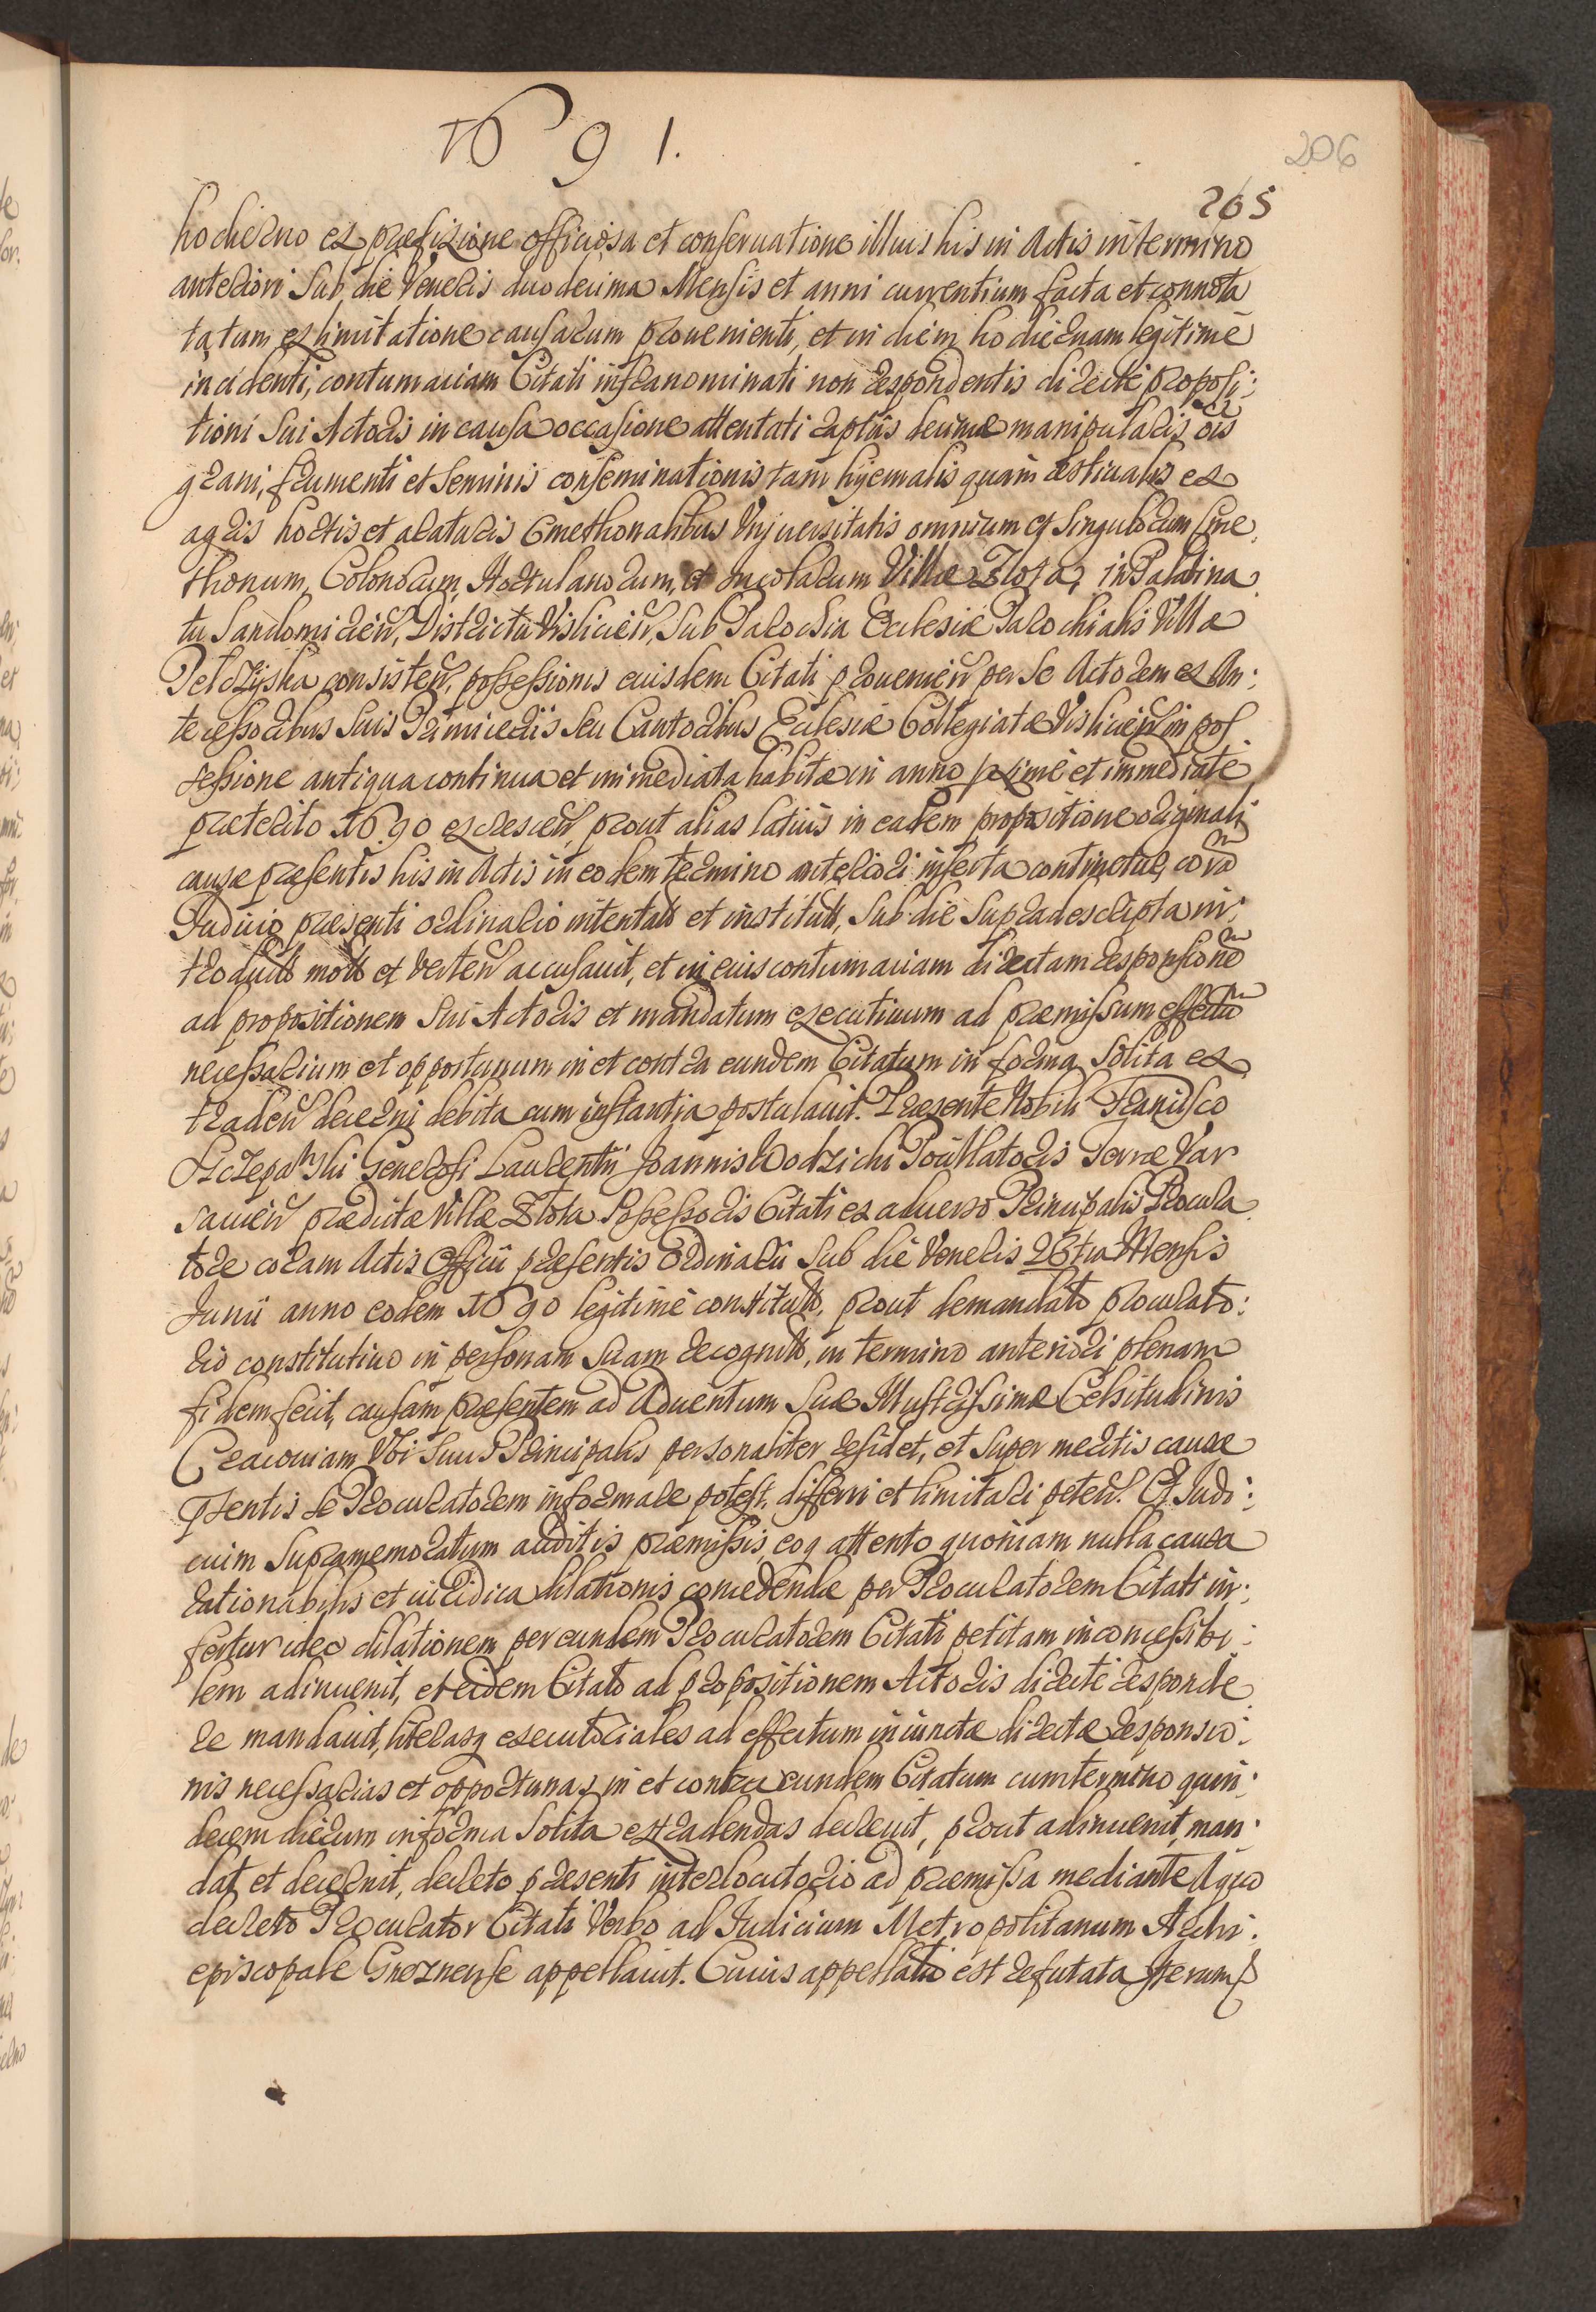 1691.
206
265
hodierno ex præfixione officiosa et conseruatione illius his in Actis in termino
anteriori Sub die Veneris duodecima Mensis et anni currentium facta et connota
ta, tum ex limitatione causarum prouenienti, et in diem hodiernam legitimè
incidenti, contumaciam Citati infranominati non respondentis directè proposi:
tioni Sui Actoris in causa occasione attentati raptûs decimæ manipularis ois
grani, frumenti et Seminis conseminationis tam hyemalis quam æstiualis ex
agris hortis et araturis Cmethonalibus Vniuersitatis omnium et Singulorum Cme,
thonum, Colonorum, Hortulanorum, et Incolarum Villæ Zlota, in Palatina,
tu Sandomirien, Districtu Vislicien, Sub Parochia Ecclesiæ Parochialis Villæ
Pelczyska consisten, possessionis eiusdem Citati prouenien per Se Actorem ex An:
tecessoribus Suis Primiceriis Seu Cantoribus Ecclesiæ Collegiatæ Vislicien in pos
sessione antiqua continua et immediata habitæ in anno pximè et immediatè
præterito 1690 excrescen, prout alias latiùs in eadem propositione originali
causæ præsentis his in Actis in eodem termino anteriori inserta continetur, cora
Judicio præsenti ordinario intentato et institutto, Sub die Supradescripta in:
troducto moto et verten accusauit, et in eius contumaciam directam responsione
ad propositionem Sui Actoris et mandatum executiuum ad præmissum effectu
necessarium et opportunum in et contra eundem Citatum in forma Solita ex
traden decerni debita cum instantia postulauit. Præsente Nobili Francisco
Generosi Laurentii Joannis Wodzicki Terræ Var
sauien prædictæ Villæ Zlota Possessoris Citati ex aduerso Principalis Procura
tore coram Actis Officii præsentis Ordinarii Sub die Veneris 23tia Mensis
Junii anno eodem 1690 legitimè constituto, prout de mandato procurato:
rio constitutiuo in personam Suam recognito, in termino anteriori plenam
fidem fecit, causam præsentem ad Aduentum Suæ Illustrissimæ Celsitudinis
Cracouiam Vbi Suus Principalis personaliter residet, et Super meritis causæ
psentis Se Procuratorem informare potest, differri et limitari peten. Et Judi:
cium Supramemoratum auditis præmissis, eoq attento quoniam nulla causa
rationabilis et iuridica dilationis concedendæ per Procuratorem Citati in:
fertur ideo dilationem per eundem Procuratorem Citati petitam inconcessibi:
lem adinuenit, et eidem Citato ad propositionem Actoris directè responde
re mandauit, literasq executoriales ad effectum iniunctæ directæ responsio:
nis necessarias et opportunas in et contra eundem Citatum cum termino quin:
decem dierum in forma Solita extradendas decreuit, prout adinuenit, man:
dat et decernit, decreto præsenti interlocutorio ad præmissa mediante A quo
decreto Procurator Citati Verbo ad Judicium Metropolitanum Archi:
episcopale Gneznense appellauit. Cuius appellatio est refutata Iterum